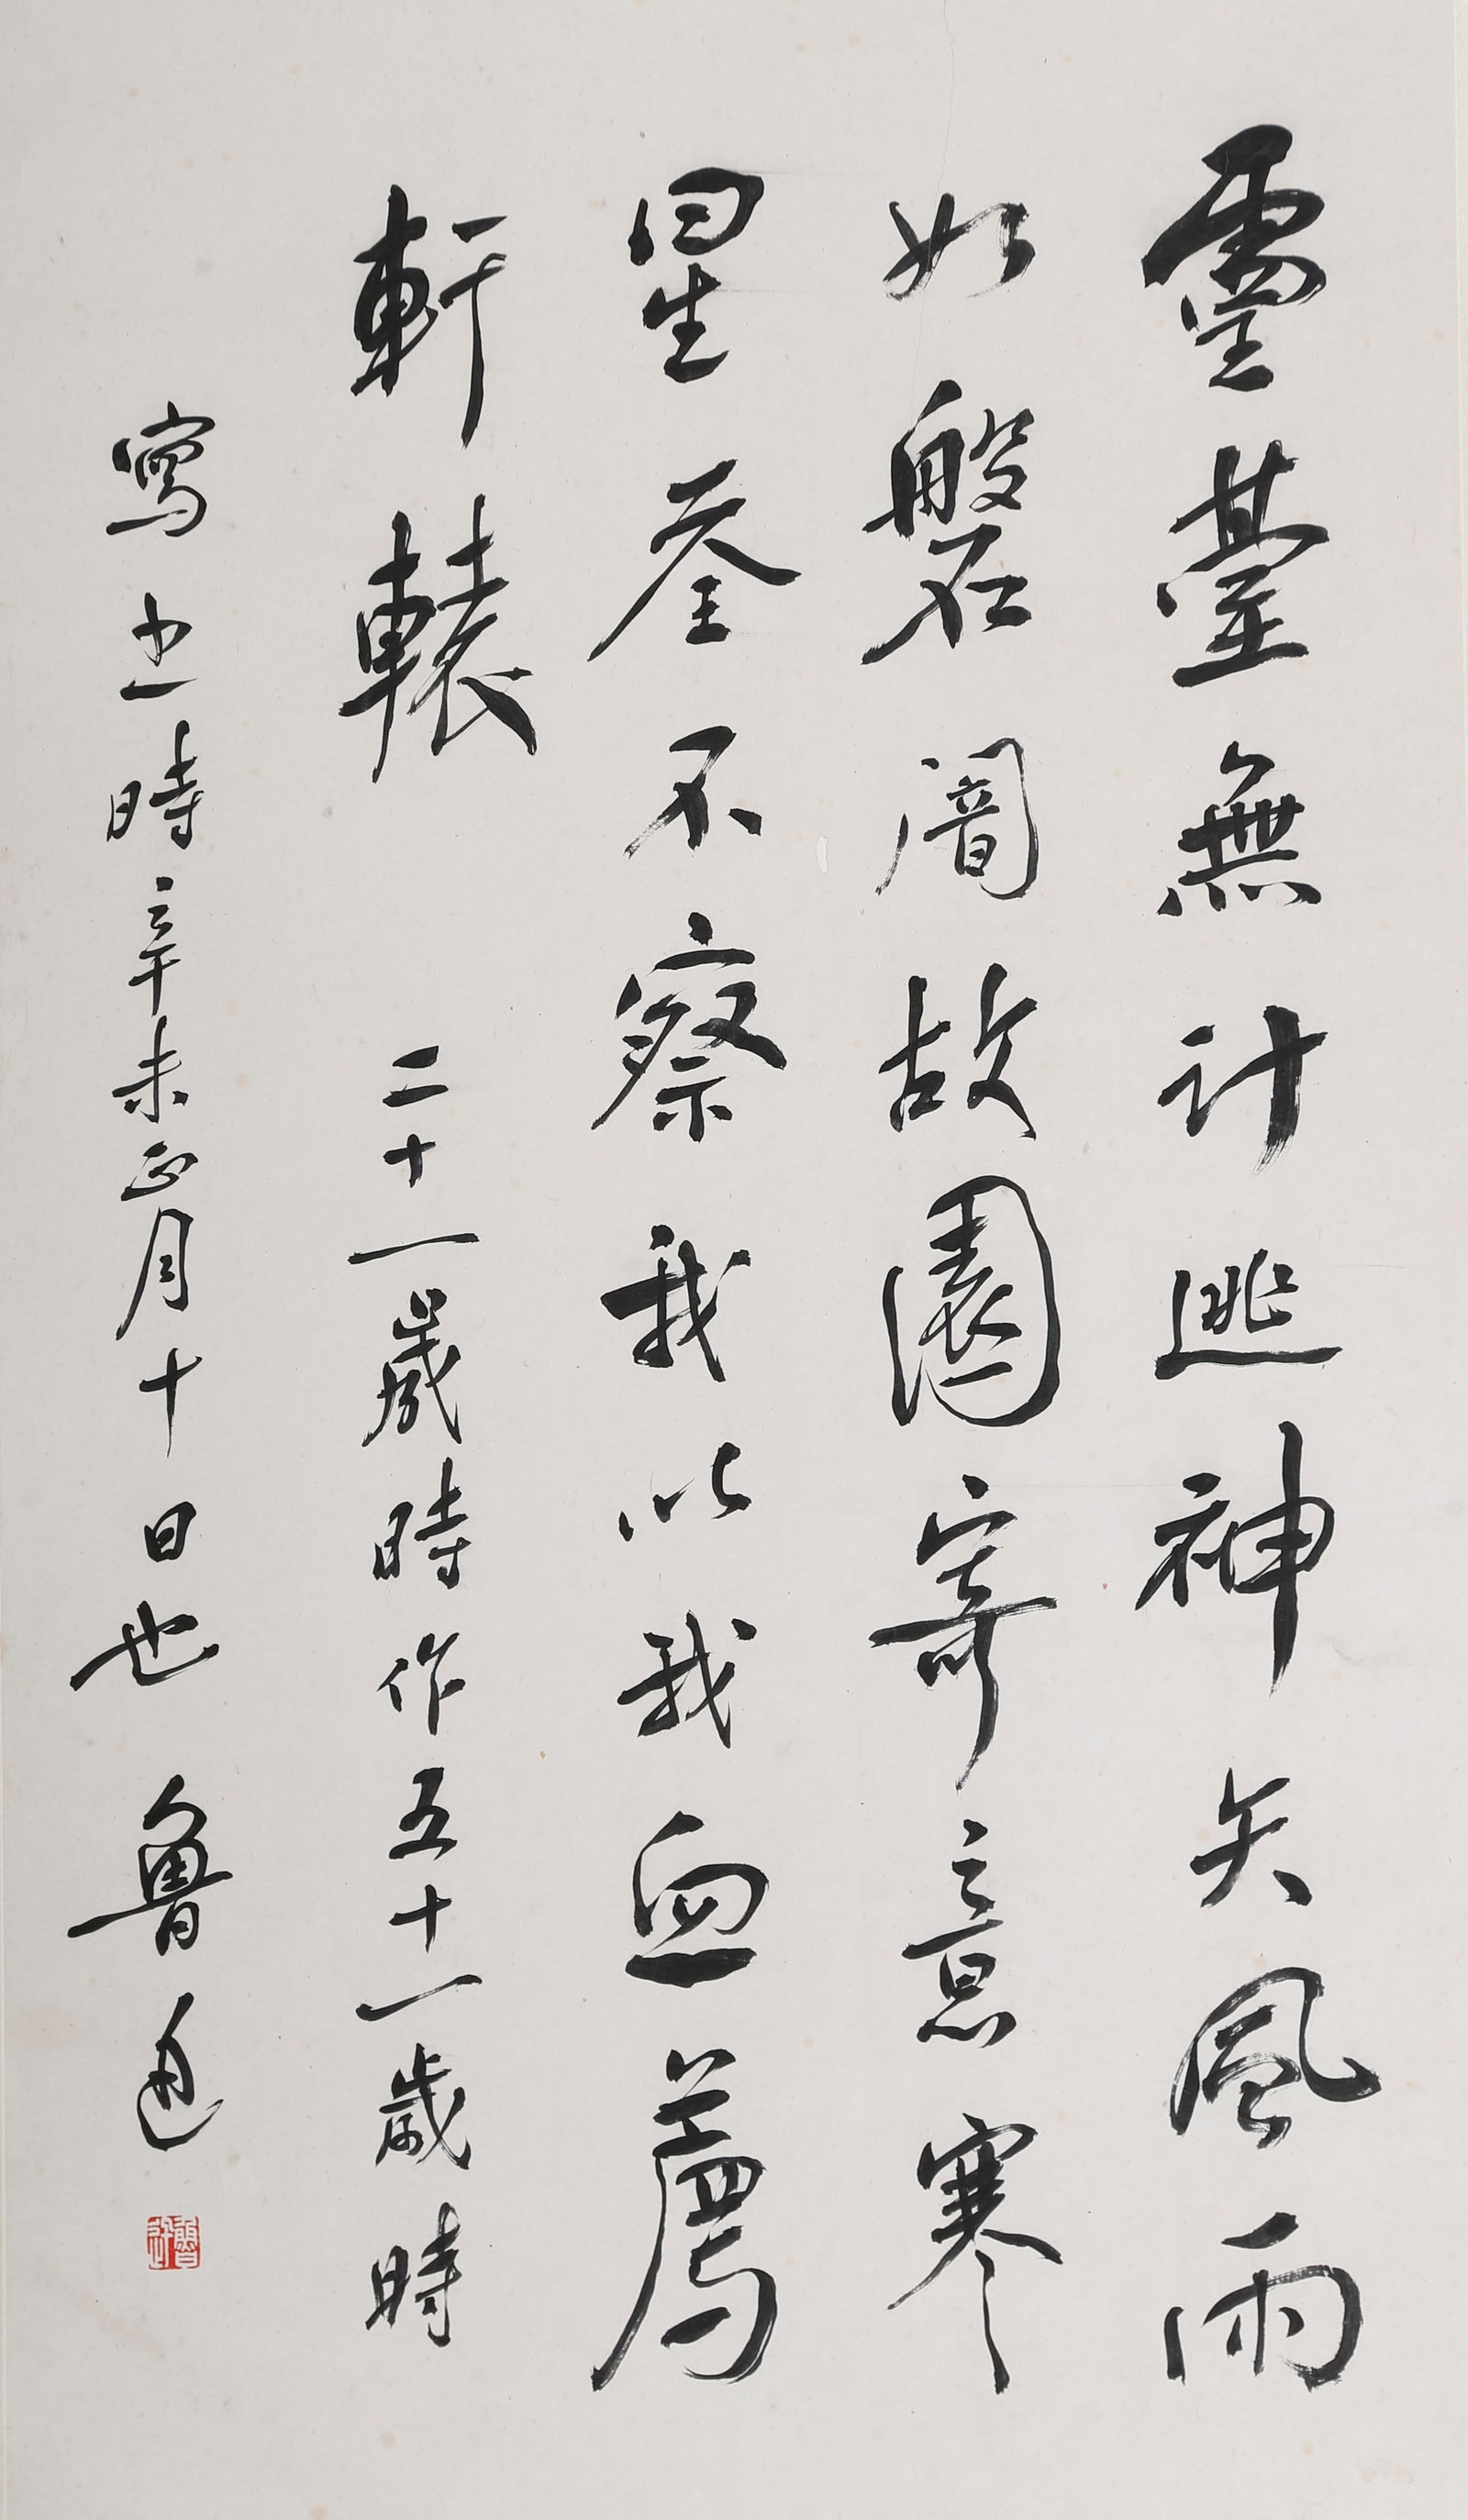 靈臺無計逃神矢風雨
如磐闇故園寄意寒
星荃不察我以我血薦
軒轅 二十一歲時作五十一歲時
寫之時辛未正月十日也 魯迅
魯迅